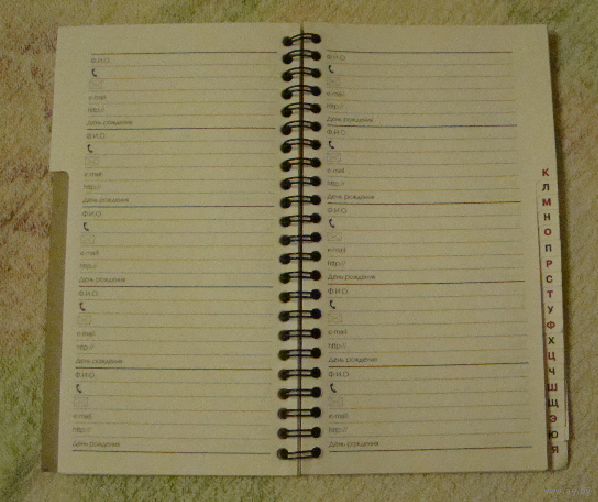 Ф.И.О.
e-mail
http://
День рождения
Ф.И.О.
e-mail
http://
День рождения
Ф.И.О.
e-mail
http://
День рождения
Ф.И.О.
e-mail
http://
День рождения
Ф.И.О.
e-mail
http://
День рождения
Ф.И.О.
e-mail
http://
День рождения
Ф.И.О.
e-mail
http://
День рождения
Ф.И.О.
e-mail
http://
День рождения
Ф.И.О.
e-mail
http://
День рождения
Ф.И.О.
e-mail
http://
День рождения
К
Л
М
Н
О
П
Р
С
Т
У
Ф
Х
Ц
Ч
Ш
Щ
Э
Ю
Я
www.ay.by